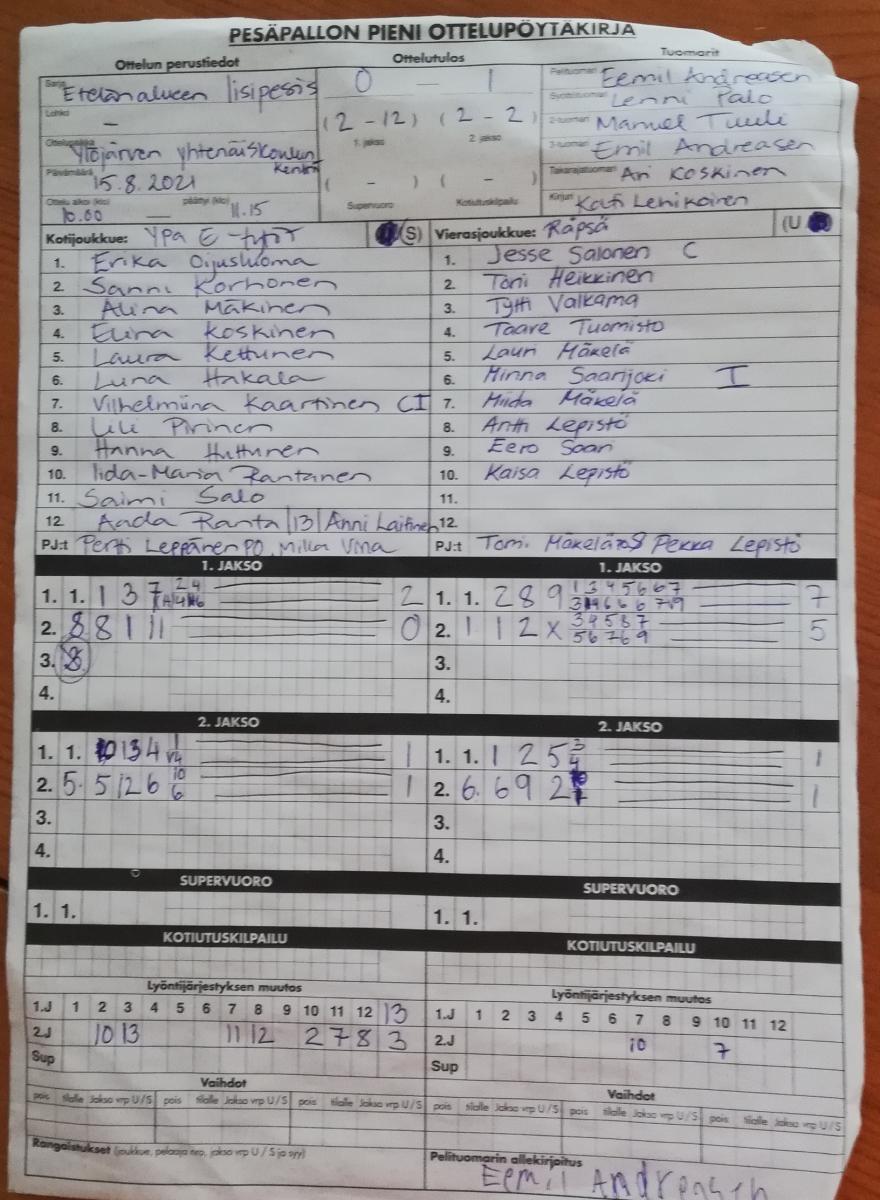 PESÄPALLON PIENI OTTELUPÖYTÄKIRJA
Ottelun perustiedot
Ottelutulos
Tuomarit
Sarja Etelänalueen lisipesis
Lohko –
Ottelupaikka Ylöjärven yhtenäiskoulun kenttä
Päivämäärä 15.8.2021
Ottelu alkoi (klo) 10.00 — päättyi (klo) 11.15
0 – 1
(2 - 12) (2 - 2)
1. jakso 2. jakso
( - ) ( - )
Supervuoro Kotiutuskilpailu
Pelituomari Eemil Andreasen
Syöttötuomari Lenni Palo
2-tuomari Manuel Tuuli
3-tuomari Emil Andreasen
Takarajatuomari Ari Koskinen
Kirjuri Kati Lehikoinen
Kotijoukkue: YPa E-tytöt (S)
1. Erika Oijusluoma
2. Sanni Korhonen
3. Alina Mäkinen
4. Elina Koskinen
5. Laura Kettunen
6. Luna Hakala
7. Vilhelmiina Kaartinen CI
8. Lili Pirinen
9. Hanna Huttunen
10. Iida-Maria Rantanen
11. Saimi Salo
12. Aada Ranta |13| Anni Laitinen
PJ:t Pertti Leppänen PO, Milka
Vierasjoukkue: Räpsä (U
1. Jesse Salonen C
2. Toni Heikkinen
3. Tytti Valkama
4. Taare Tuomisto
5. Lauri Mäkelä
6. Minna Saarijoki I
7. Miida Mäkelä
8. Antti Lepistö
9. Eero Saari
10. Kaisa Lepistö
11.
12.
PJ:t Tomi Mäkelä Pekka Lepistö
1. JAKSO
1. 1. 1 3 7 2 4 2
2. 8 8 1 11 0
3. 8
4.
1. JAKSO
1. 1. 2 8 9 1 3 4 5 6 6 7 7
2. 1 1 2 X 3 4 5 8 7 5
5 6 7 6 9
3.
4.
2. JAKSO
1. 1. 13 4 1 1
2. 5. 5 12 6 10 1
6
3.
4.
2. JAKSO
1. 1. 1 2 5 3 1
4
2. 6. 6 9 2 1
3.
4.
SUPERVUORO
1. 1.
SUPERVUORO
1. 1.
KOTIUTUSKILPAILU
KOTIUTUSKILPAILU
Lyöntijärjestyksen muutos
1.J 1 2 3 4 5 6 7 8 9 10 11 12 13
2.J 10 13 11 12 2 7 8 3
Sup
Lyöntijärjestyksen muutos
1.J 1 2 3 4 5 6 7 8 9 10 11 12
2.J 10 7
Sup
Vaihdot
pois tilalle Jakso vrp U/S pois tilalle Jakso vrp U/S pois tilalle Jakso vrp U/S
Vaihdot
pois tilalle Jakso vrp U/S pois tilalle Jakso vrp U/S pois tilalle Jakso vrp U/S
Rangaistukset (joukkue, pelaaja nro, jakso vrp U / S ja syy)
Pelituomarin allekirjoitus
Eemil Andreasen